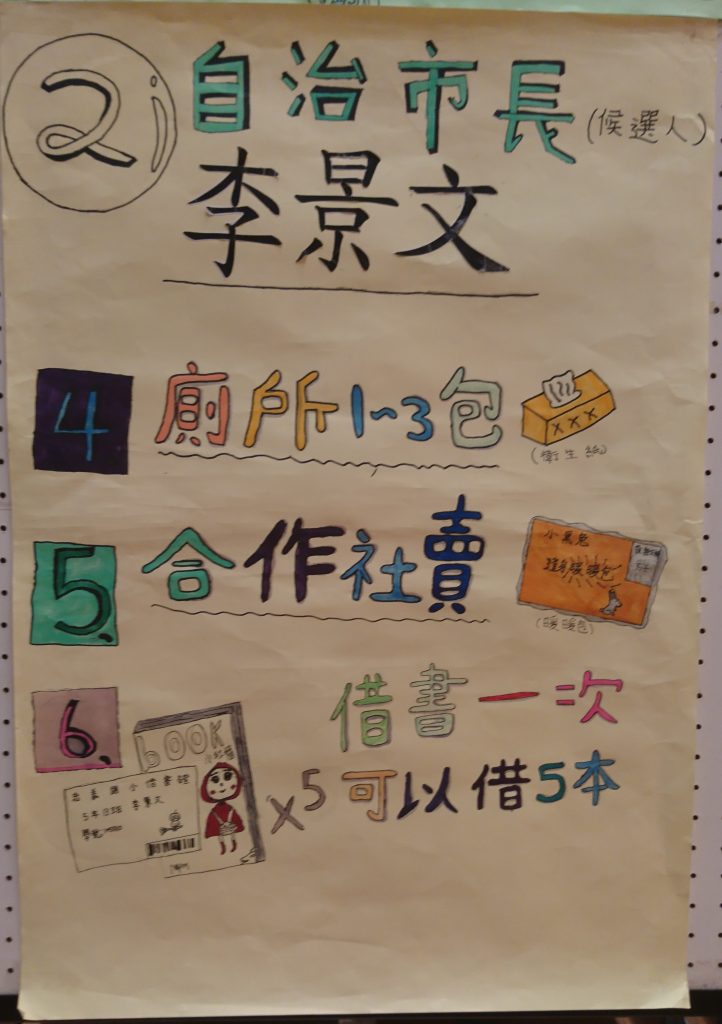 2号 自治市長(候選人)
李景文
4 廁所1~3包
(衛生紙)
5、 合作社賣
小黑兔
(暖暖包)
6、 借書一次
BOOK
小紅帽
x5 可以借5本
李景文